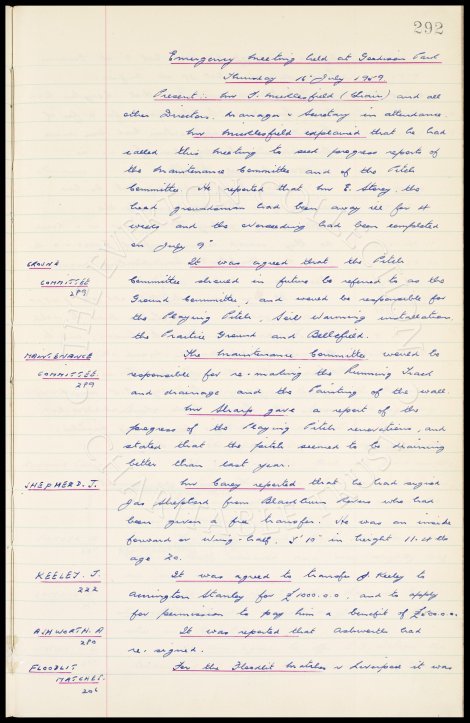 292
Emergency Meeting held at Goodison Park
Thursday 16 July 1959
Present: Mr F. Micklesfield (Chair) and all
other Directors. Manager & Secretary in attendance
Mr Micklesfield explained that he had
called this Meeting to seek progress reports of
the Maintenance Committee and of the Pitch
Committee. He reported that Mr E. Storey, the
head groundsman had been away ill for 4
weeks and the overseeding had been completed
on July 9th
GROUND
COMMITTEE
289
It was agreed that the Pitch
Committee should in future be referred to as the
Ground Committee, and would be responsible for
the Playing Pitch, Soil Warming installation,
the Practice Ground and Bellefield.
MAINTENANCE
COMMITTEE
289
The Maintenance Committee would be
responsible for re-making the Running Track
and drainage and the Painting of the wall.
Mr Sharp gave a report of the
progress of the Playing Pitch renovations, and
stated that the pitch seemed to be draining
better than last year.
SHEPHERD. J.
Mr Carey reported that he had signed
Jas Shepherd from Blackburn Rovers who had
been given a free transfer. He was an inside
forward or Wing-half, 5' 10" in height 11.4 lbs
age 20.
KEELEY. J.
222
It was agreed to transfer J Keeley to
Accrington Stanley for £1000.0.0. and to apply
for permission to pay him a benefit of
ASHWORTH. A
280
It was reported that Ashworth had
re-signed.
FLOODLIT
MATCHES.
206
For the Floodlit Matches v Liverpool it was
THE EVERTON COLLECTION
CHARITABLE TRUST